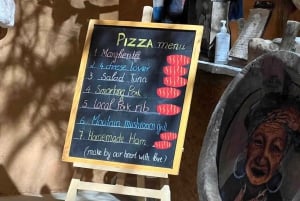 PIZZA menu
1 Margherita
2 4 cheese lover
3 Salad Tuna
4 Smoking Pork
5 Local Pork rib
6 Moutain mushroom grill
7 Homemade Ham
(make by our heart with love)